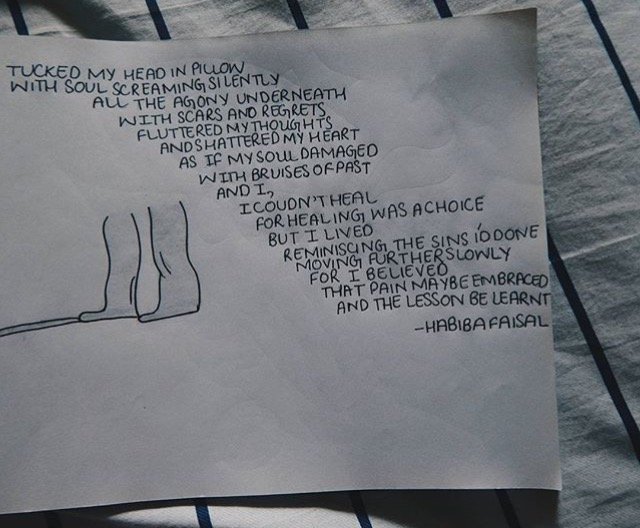 TUCKED MY HEAD IN PILLOW
WITH SOUL SCREAMING SILENTLY
ALL THE AGONY UNDERNEATH
WITH SCARS AND REGRETS
FLUTTERED MY THOUGHTS
AND SHATTERED MY HEART
AS IF MY SOUL DAMAGED
WITH BRUISES OF PAST
AND I,
I COUDN'T HEAL
FOR HEALING WAS A CHOICE
BUT I LIVED
REMINISCING THE SINS I'D DONE
MOVING FURTHER SLOWLY
FOR I BELIEVED
THAT PAIN MAYBE EMBRACED
AND THE LESSON BE LEARNT
-HABIBA FAISAL